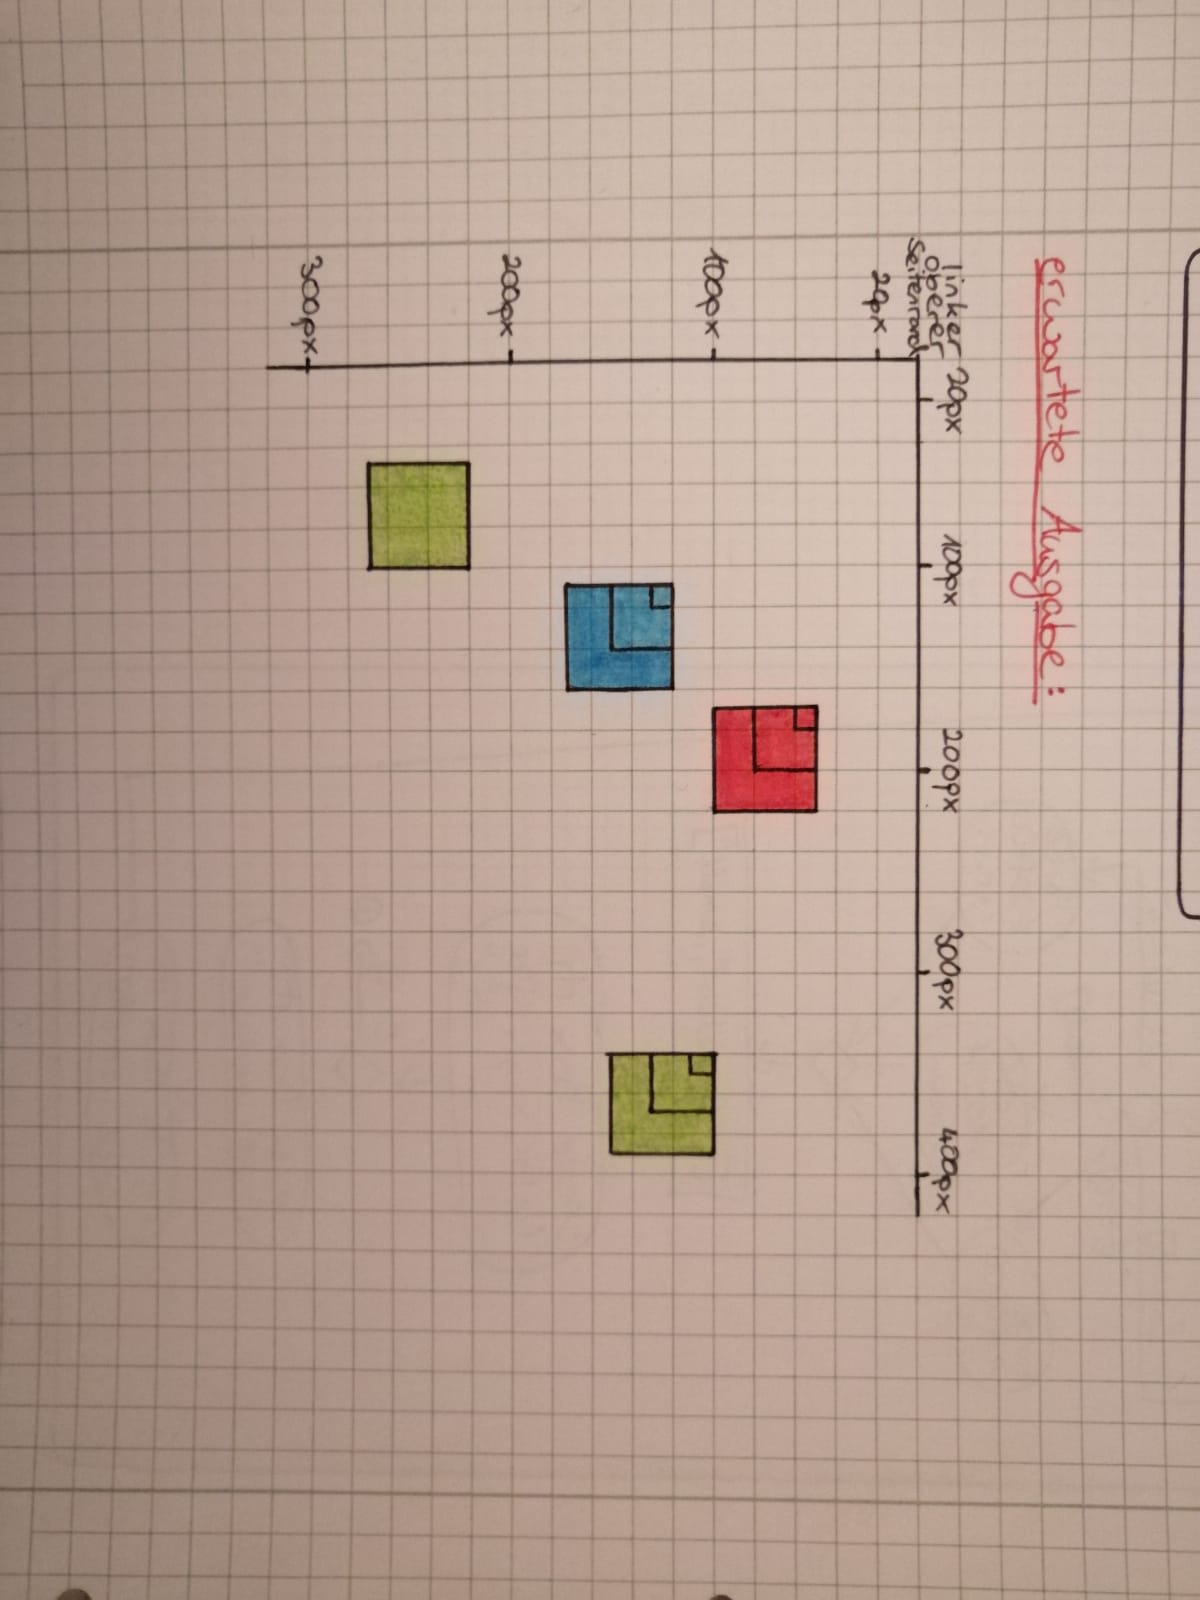 erwartete Ausgabe:
linker
oberer
Seitenrand
20px
100px
200px
300px
400px
20px
100px
200px
300px